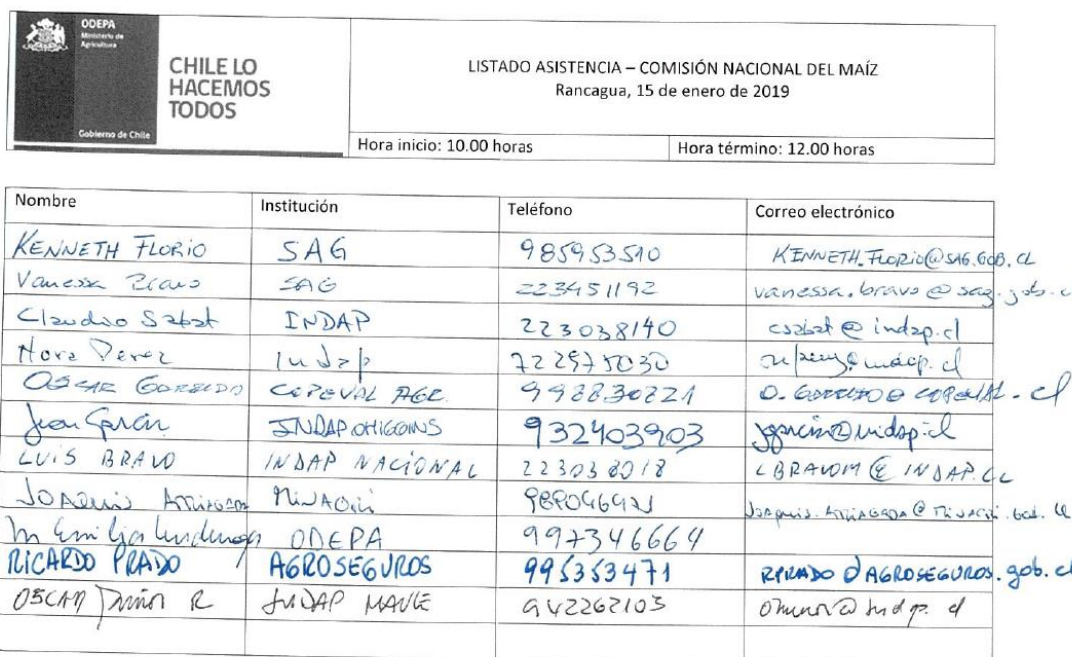 ODEPA
Ministerio de
Agricultura
CHILE LO
HACEMOS
TODOS
Gobierno de Chile
LISTADO ASISTENCIA – COMISIÓN NACIONAL DEL MAÍZ
Rancagua, 15 de enero de 2019
Hora inicio: 10.00 horas Hora término: 12.00 horas
Nombre Institución Teléfono Correo electrónico
KENNETH FLORIO SAG 985953510 KENNETH.FLORIO@SAG.GOB.CL
Vanessa Bravo SAG 223451192 vanessa.bravo@sag.gob.c
Claudio Sabat INDAP 223038140 csabat@indap.cl
Nora Perez Indap 722975030
OSCAR GORREDO COPEVAL AGR. 998830221
Juan García INDAP OHIGGINS 932403903 jgarcia@indap.cl
LUIS BRAVO INDAP NACIONAL 223038018 LBRAVOM@INDAP.CL
JOAQUIN ARRIAGADA MINAGRI
M Emilia Undurraga ODEPA 997346664
RICARDO PRADO AGROSEGUROS 995353471 RPRADO@AGROSEGUROS.gob.cl
OSCAR Muñoz R INDAP MAULE 942262103